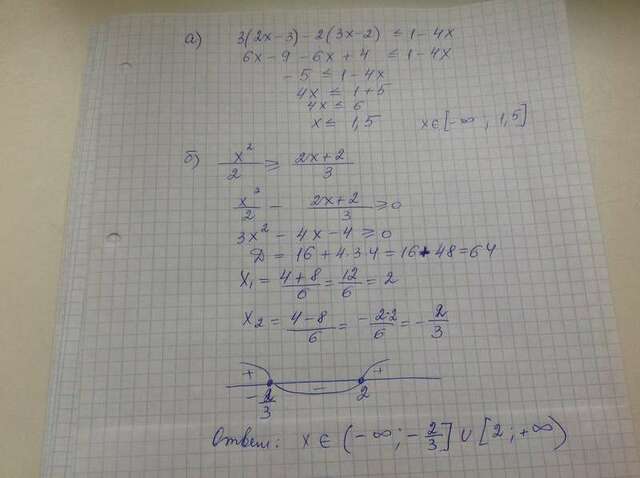 а) 3(2x-3)-2(3x-2) ≤ 1-4x
6x-9-6x+4 ≤ 1-4x
-5 ≤ 1-4x
4x ≤ 1+5
4x ≤ 6
x ≤ 1,5 x∈[-∞; 1,5]
б) x²/2 ≥ (2x+2)/3
x²/2 - (2x+2)/3 ≥ 0
3x²-4x-4 ≥ 0
Д = 16+4·3·4 = 16+48 = 64
x₁ = (4+8)/6 = 12/6 = 2
x₂ = (4-8)/6 = -2·2/6 = -2/3
+ - +
-2/3 2
Ответ: x∈(-∞; -2/3] ∪ [2; +∞)